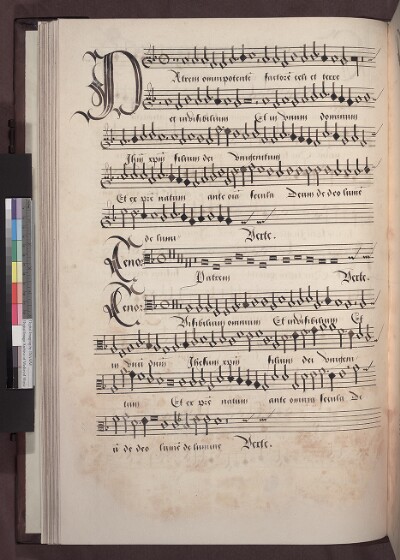 Patrem omnipotentē factorē celi et terre
et invisibilium Et in unum dominum
Ihm xpm filium dei unigenitum
Et ex pre natum ante oīa secula Deum de deo lumē
de lumi Verte.
Tenor
Patrem Verte.
Tenor
Visibilium omnium Et invisibilium Et
in unū dnm Ihesum xpm filium dei unigeni
tum Et ex pre natum ante omnia secula De
ū de deo lumē de lumine Verte.